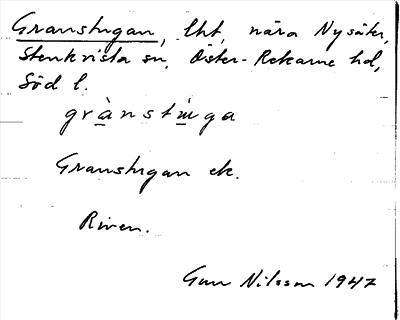 Granstugan, lht, nära Nysäter,
Stenkvista sn, Öster-Rekarne hd,
Söd l.
grànstɯga
Granstugan ek.
Riven.
Gun Nilsson 1947